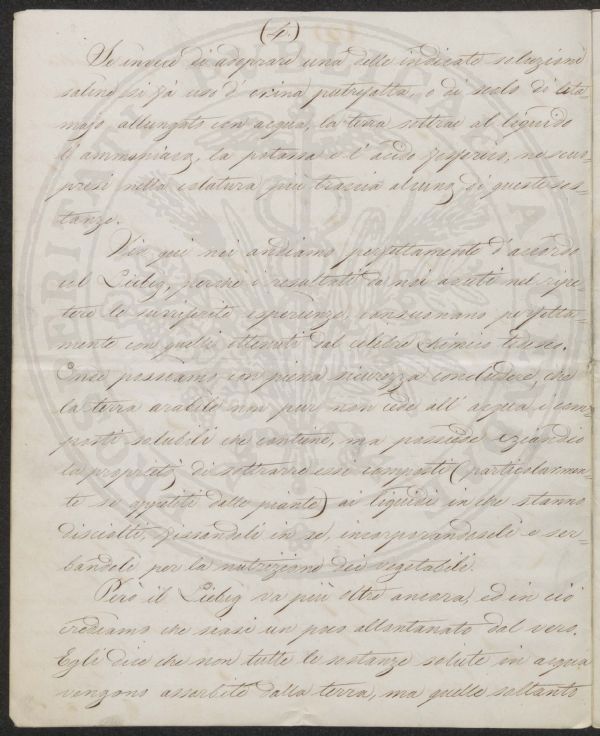 (4.)
Se invece di adoprare una delle indicate soluzioni
saline si fà uso d'orina putrefatta, o di scolo di leta-
majo allungato con acqua, la terra sottrae al liquido
l'ammoniaca, la potassa e l'acido fosforico, nè scuo-
presi nella colatura più traccia alcuna di queste sos-
tanze.
Fin qui noi andiamo perfettamente d'accordo
col Liebig, perchè i resultati da noi avuti nel ripe-
tere le surriferite esperienze, consuonano perfetta-
mente con quelli ottenuti dal celebre Chimico Tedesco.
Onde possiamo con piena sicurezza concludere, che
la terra arabile non pur non cede all'acqua, i com-
posti solubili che contiene, ma possiede eziandio
la proprietà di sottrarre essi composti (particolarmen-
te se appetiti dalle piante) ai liquidi in che stanno
disciolti, fissandoli in se, incorporandoseli e ser-
bandoli per la nutrizione dei vegetabili.
Però il Liebig va più oltre ancora, ed in ciò
crediamo che siasi un poco allontanato dal vero.
Egli dice che non tutte le sostanze solute in acqua
vengono assorbite dalla terra, ma quelle soltanto